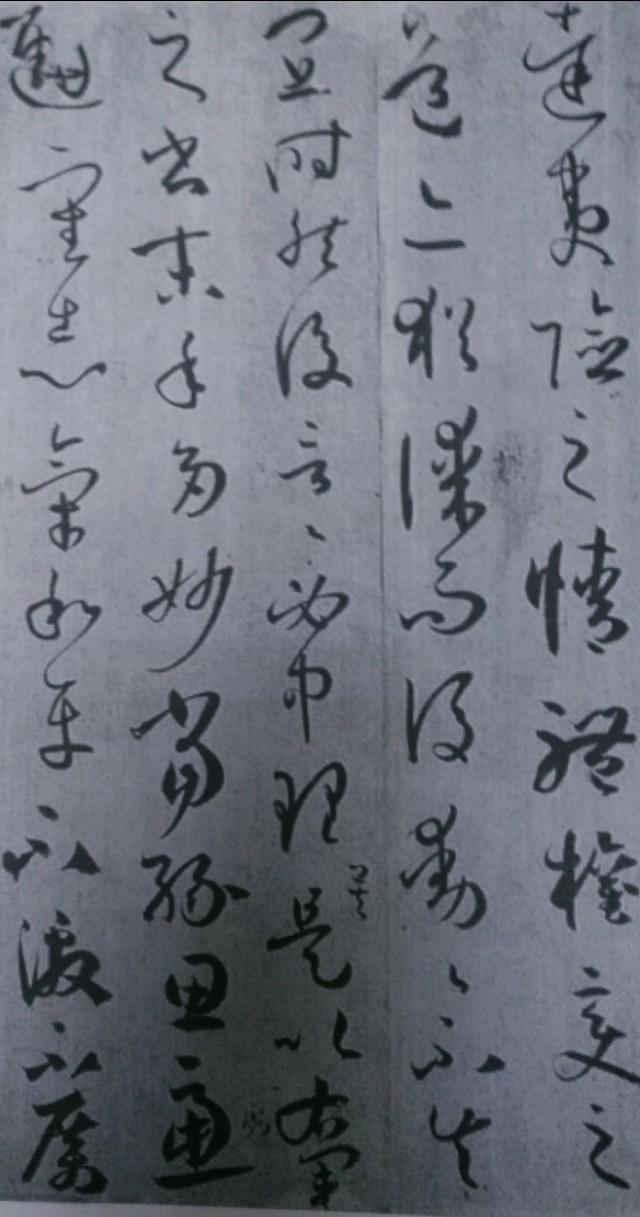 達夷險之情體權變之
道亦猶謀而後動〻不失
宜時然後言〻必中理矣是以右軍
之書末年多妙當緣思慮
通審志氣和平不激不厲